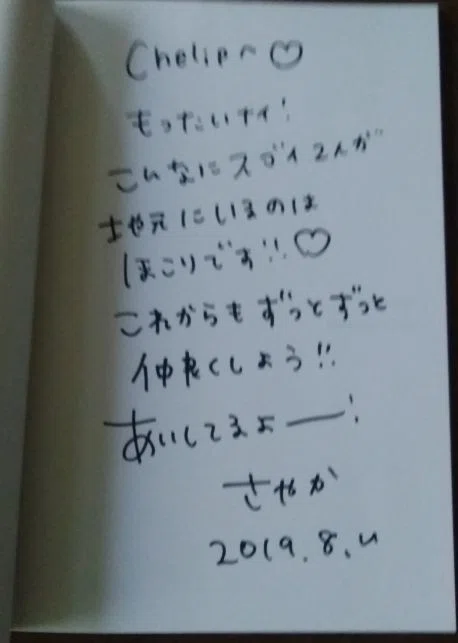 Chelip~♡
もったいナイ!
こんなにスゴイ2人が
地元にいるのは
ほこりです!!♡
これからもずっとずっと
仲良くしよう!!
あいしてるよー!
さやか
2019.8.4